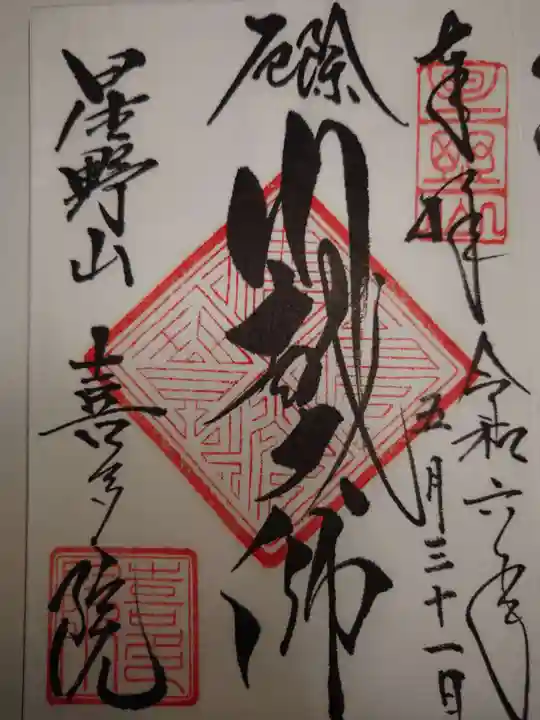 奉拝
令和六年
五月三十一日
厄除
川越大師
星野山
喜多院